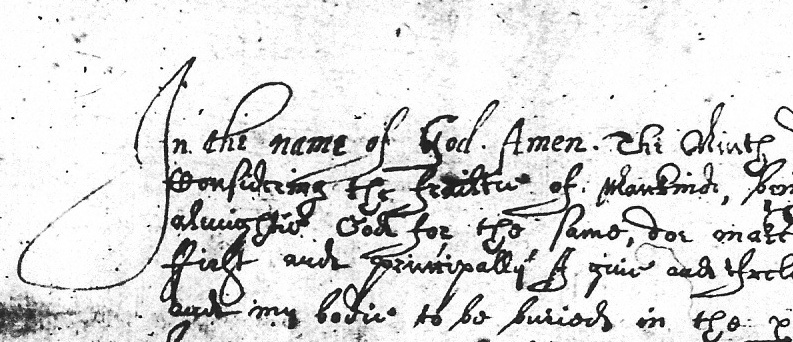 In the name of God. Amen. The Ninth
Considering the frailtie of Mankinde,
almightie God for the same, doe make
first and principally I give and
and my bodie to be buried in the